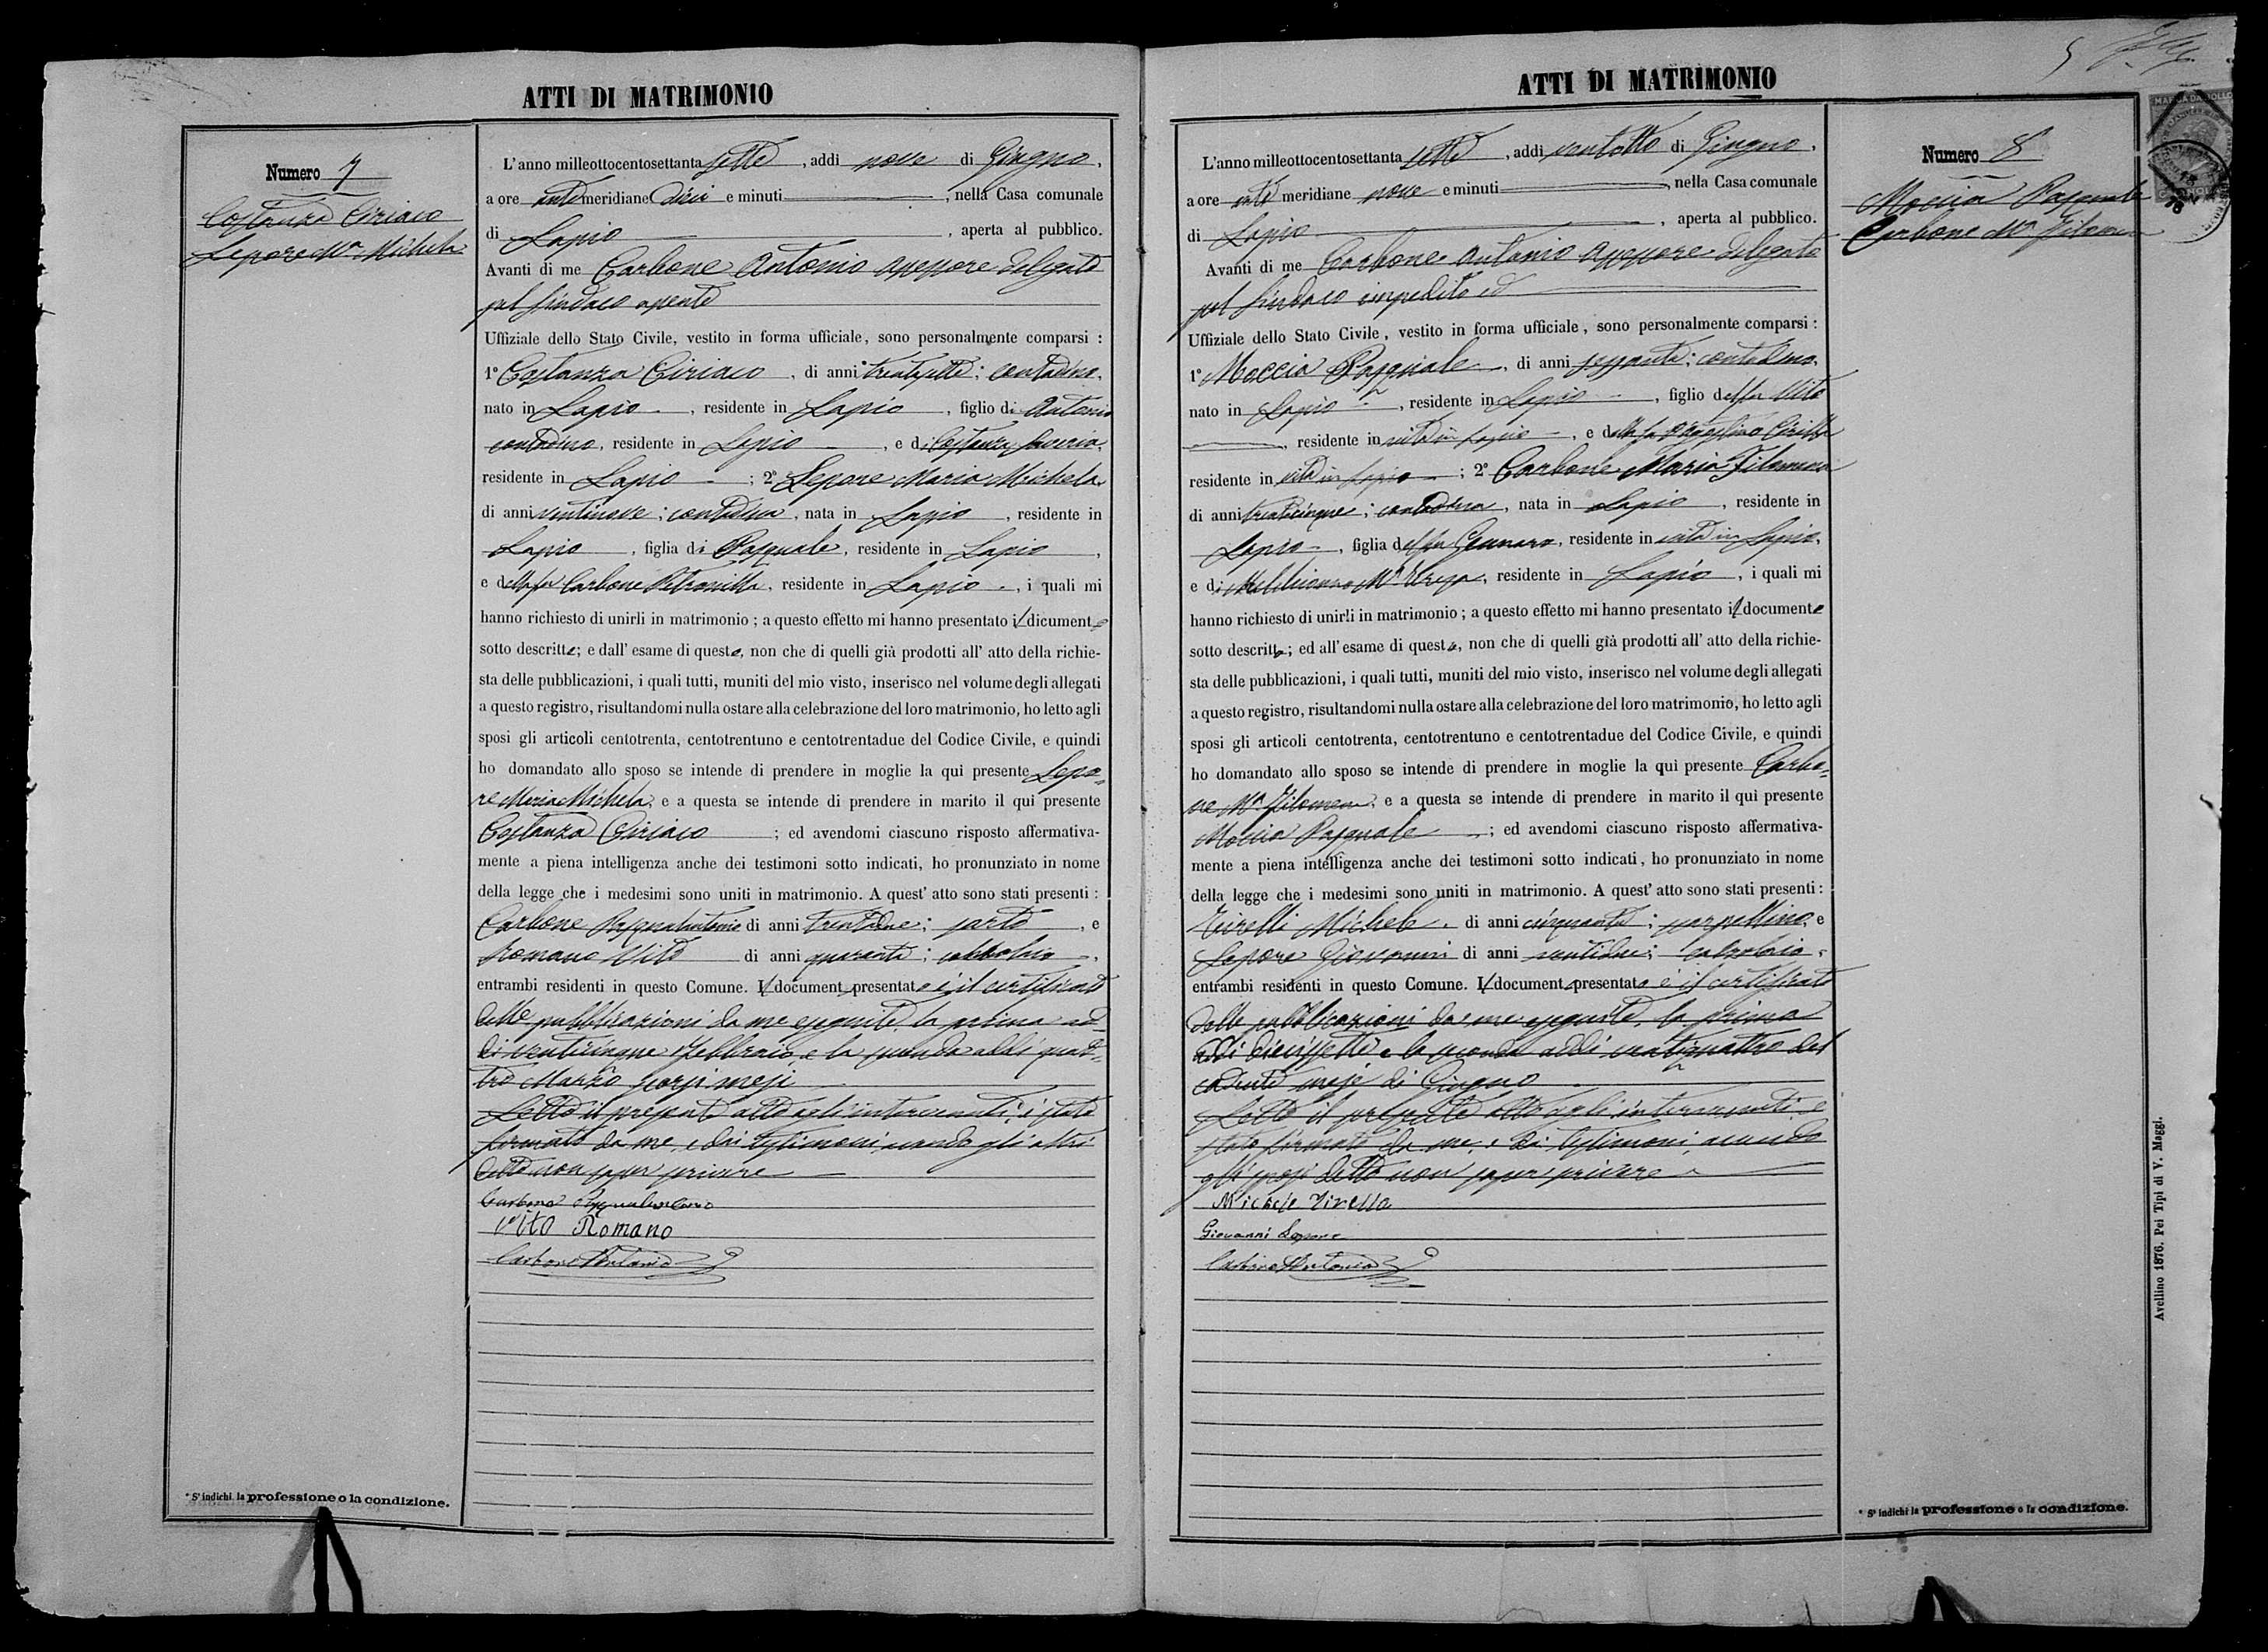 ATTI DI MATRIMONIO
Numero 7
Costanza Ciriaco
Lepore Mª Michela
L'anno milleottocentosettanta sette, addi nove di Giugno,
a ore anti meridiane dieci e minuti, nella Casa comunale
di Lapio, aperta al pubblico.
Avanti di me Carbone Antonio Assessore delegato
pel Sindaco assente
Uffiziale dello Stato Civile, vestito in forma ufficiale, sono personalmente comparsi :
1º Costanza Ciriaco, di anni trentasette; contadino,
nato in Lapio, residente in Lapio, figlio di Antonio
contadino, residente in Lapio, e di Costanza
residente in Lapio; 2º Lepore Maria Michela,
di anni ventinove; contadina, nata in Lapio, residente in
Lapio, figlia di Pasquale, residente in Lapio,
e della fu Carbone Petronilla, residente in Lapio, i quali mi
hanno richiesto di unirli in matrimonio ; a questo effetto mi hanno presentato il dicumento
sotto descritto; e dall' esame di questo, non che di quelli già prodotti all' atto della richie-
sta delle pubblicazioni, i quali tutti, muniti del mio visto, inserisco nel volume degli allegati
a questo registro, risultandomi nulla ostare alla celebrazione del loro matrimonio, ho letto agli
sposi gli articoli centotrenta, centotrentuno e centotrentadue del Codice Civile, e quindi
ho domandato allo sposo se intende di prendere in moglie la qui presente Lepo=
re Maria Michela, e a questa se intende di prendere in marito il qui presente
Costanza Ciriaco; ed avendomi ciascuno risposto affermativa-
mente a piena intelligenza anche dei testimoni sotto indicati, ho pronunziato in nome
della legge che i medesimi sono uniti in matrimonio. A quest' atto sono stati presenti :
Carbone Pasqualantonio di anni trentadue; sarto, e
Romano Vito di anni quaranta;
entrambi residenti in questo Comune. Il documento presentato è il certificato
delle pubblicazioni da me eseguite, la prima ad=
di venticinque Febbraio, e la seconda addi quat=
tro Marzo scorsi mesi
Letto il presente atto agli intervenuti, è stato
firmato da me, e dai testimoni, avendo gli altri
detto non saper scrivere
Carbone Pasqualantonio
Vito Romano
Carbone Antonio
* S' indichi la professione o la condizione.
ATTI DI MATRIMONIO
Numero 8
Moccia Pasquale
Carbone Mª Filomena
L'anno milleottocentosettanta sette, addi ventotto di Giugno,
a ore anti meridiane nove e minuti, nella Casa comunale
di Lapio, aperta al pubblico.
Avanti di me Carbone Antonio Assessore delegato
pel Sindaco impedito ed
Uffiziale dello Stato Civile, vestito in forma ufficiale, sono personalmente comparsi :
1º Moccia Pasquale, di anni sessanta; contadino,
nato in Lapio, residente in Lapio, figlio del fu Vito
, residente in vita in Lapio, e della fu D'Agostino Cirilla
residente in vita in Lapio; 2º Carbone Maria Filomena
di anni trentacinque; contadina, nata in Lapio, residente in
Lapio, figlia del fu Gennaro, residente in vita in Lapio,
e di Mª Teresa, residente in Lapio, i quali mi
hanno richiesto di unirli in matrimonio ; a questo effetto mi hanno presentato il documento
sotto descritto; ed all' esame di questo, non che di quelli già prodotti all' atto della richie-
sta delle pubblicazioni, i quali tutti, muniti del mio visto, inserisco nel volume degli allegati
a questo registro, risultandomi nulla ostare alla celebrazione del loro matrimonio, ho letto agli
sposi gli articoli centotrenta, centotrentuno e centotrentadue del Codice Civile, e quindi
ho domandato allo sposo se intende di prendere in moglie la qui presente Carbo=
ne Mª Filomena, e a questa se intende di prendere in marito il qui presente
Moccia Pasquale; ed avendomi ciascuno risposto affermativa-
mente a piena intelligenza anche dei testimoni sotto indicati, ho pronunziato in nome
della legge che i medesimi sono uniti in matrimonio. A quest' atto sono stati presenti :
Tirelli Michele, di anni cinquanta; scarpellino, e
Lepore Giovanni di anni ventidue; calzolaio,
entrambi residenti in questo Comune. Il documento presentato è il certificato
delle pubblicazioni da me eseguite, la prima
addi diciassette e la seconda addi ventiquattro del
cadente mese di Giugno
Letto il presente atto agli intervenuti, è
stato firmato da me, e dai testimoni, avendo
gli sposi detto non saper scrivere
Michele Tirella
Giovanni Lepore
Carbone Antonio
* S' indichi la professione o la condizione.
Avellino 1876. Pei Tipi di V. Maggi.